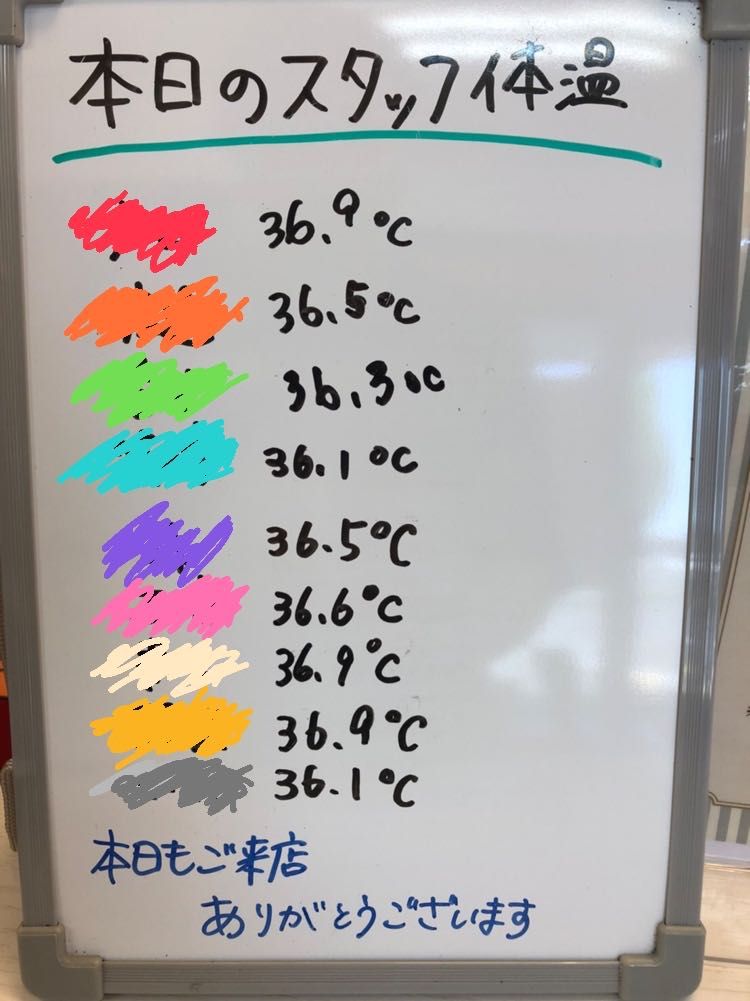 本日のスタッフ体温
36.9℃
36.5℃
36.3℃
36.1℃
36.5℃
36.6℃
36.9℃
36.9℃
36.1℃
本日もご来店
ありがとうございます